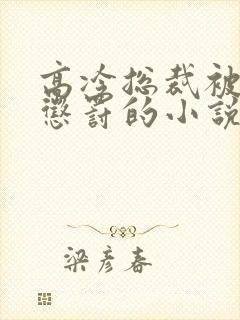 高冷总裁被
懲罰的小說
梁彥春